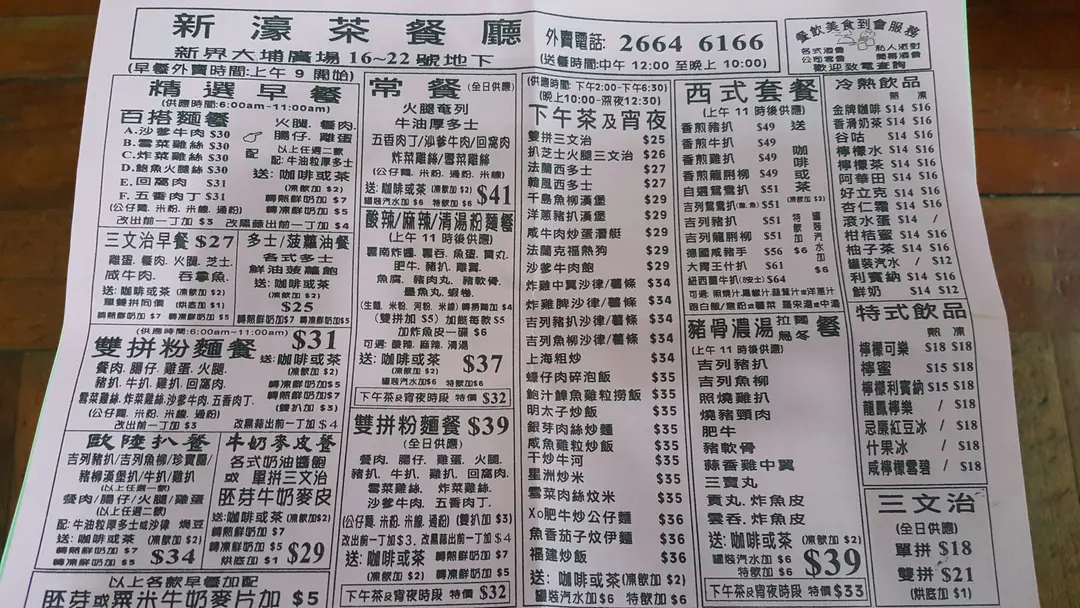 新濠茶餐廳
新界大埔廣場16~22號地下
外賣電話: 2664 6166
(送餐時間:中午 12:00 至晚上 10:00)
愛飲美食到會服務
各式酒會 私人派對
公司宴會 開幕酒會
歡迎致電查詢
(早餐外賣時間:上午 9 開始)
精選早餐
(供應時間:6:00am~11:00am)
百搭麵餐
A.沙爹牛肉 $30
B.雪菜雞絲 $30
C.炸菜雞絲 $30
D.鮑魚火腿絲 $30
E.回窩肉 $31
F.五香肉丁 $31
火腿. 餐肉.
腸仔. 雞蛋
以上任選二款
配: 牛油粒厚多士
送: 咖啡或茶
(凍飲加 $2)
轉熱鮮奶加 $7
轉凍鮮奶加 $5
(公仔麵. 米粉. 米線. 通粉)
改出前一丁加 $3
改黑蒜出前一丁加 $4
三文治早餐 $27
雞蛋. 餐肉. 火腿. 芝士.
咸牛肉. 吞拿魚.
送: 咖啡或茶 (凍飲加 $2)
單雙拼同價 (烘底加 $1)
轉熱鮮奶加 $7 轉凍鮮奶加 $5
多士/菠蘿油餐
各式多士
鮮油菠蘿飽
送: 咖啡或茶
(凍飲加 $2)
$25
轉熱鮮奶加 $7 轉凍鮮奶加 $5
(供應時間:6:00am~11:00am)
雙拼粉麵餐 $31
送: 咖啡或茶
(凍飲加 $2)
餐肉. 腸仔. 雞蛋. 火腿.
豬扒. 牛扒. 雞扒. 回窩肉.
雪菜雞絲. 炸菜雞絲. 沙爹牛肉. 五香肉丁.
(公仔麵. 米粉. 米線. 通粉)
轉凍鮮奶加 $5
轉熱鮮奶加 $7
(雙扒加 $3)
改出前一丁加 $3 改黑蒜出前一丁加 $4
歐陸扒餐
吉列豬扒/吉列魚柳/珍寶腸/
豬柳漢堡扒/牛扒/雞扒
(以上任選一款)
餐肉/腸仔/火腿/雞蛋
(以上任選二款)
配: 牛油粒厚多士或沙律 焗豆
送: 咖啡或茶 (凍飲加 $2)
轉熱鮮奶加 $7
轉凍鮮奶加 $5
$34
牛奶麥皮餐
各式奶油醬飽
或 單拼三文治
胚芽牛奶麥皮
送: 咖啡或茶 (凍飲加 $2)
轉熱鮮奶加 $7
轉凍鮮奶加 $5
烘底加 $1
$29
以上各款早餐加配
胚芽或粟米牛奶麥片加 $5
常餐 (全日供應)
火腿奄列
牛油厚多士
五香肉丁/沙爹牛肉/回窩肉
炸菜雞絲/雪菜雞絲
(公仔麵. 米粉. 米線. 通粉)
送: 咖啡或茶 (凍飲加 $2)
罐裝汽水加 $6 特飲加 $6
$41
酸辣/麻辣/清湯粉麵餐
(上午 11 時後供應)
雲南炸醬. 雲吞. 魚蛋. 貢丸.
肥牛. 豬扒. 雞翼.
魚腐. 豬肉丸. 豬軟骨.
墨魚丸. 蝦卷.
(生麵. 米粉. 河粉. 米線) 轉烏冬加 $4
(雙拼加 $5) 加餸每款 $5
加炸魚皮一碟 $6
可選: 酸辣. 麻辣. 清湯
送: 咖啡或茶 (凍飲加 $2)
罐裝汽水加 $6 特飲加 $6
$37
下午茶及宵夜時段 特價 $32
雙拼粉麵餐 $39
(全日供應)
餐肉. 腸仔. 雞蛋. 火腿.
豬扒. 牛扒. 雞扒. 回窩肉.
雪菜雞絲. 炸菜雞絲.
沙爹牛肉. 五香肉丁.
(公仔麵. 米粉. 米線. 通粉) (雙扒加 $3)
改出前一丁加 $3. 改黑蒜出前一丁加 $4
送: 咖啡或茶 轉熱鮮奶加 $7
(凍飲加 $2) 轉凍鮮奶加 $5
下午茶及宵夜時段 特價 $32
(供應時間: 下午2:00~下午6:30)
(晚上10:00~深夜12:30)
下午茶及宵夜
雙拼三文治 $25
扒芝士火腿三文治 $26
法蘭西多士 $27
韓風西多士 $27
千島魚柳漢堡 $29
洋蔥豬扒漢堡 $29
咸牛肉炒蛋潛艇 $29
法蘭克福熱狗 $29
沙爹牛肉飽 $29
炸雞中翼沙律/薯條 $34
炸雞脾沙律/薯條 $34
吉列豬扒沙律/薯條 $34
吉列魚柳沙律/薯條 $34
上海粗炒 $34
蠔仔肉碎泡飯 $35
鮑汁鱆魚雞粒撈飯 $35
明太子炒飯 $35
銀芽肉絲炒麵 $35
咸魚雞粒炒飯 $35
干炒牛河 $35
星洲炒米 $35
雪菜肉絲炆米 $35
Xo肥牛炒公仔麵 $36
魚香茄子炆伊麵 $36
福建炒飯 $36
送: 咖啡或茶(凍飲加 $2)
罐裝汽水加 $6 特飲加 $6
西式套餐
(上午 11 時後供應)
香煎豬扒 $49
香煎牛扒 $49
香煎雞扒 $49
香煎龍脷柳 $49
自選鴛鴦扒 $51
吉列鴛鴦扒 $51
吉列豬扒 $51
吉列龍脷柳 $51
德國咸豬手 $56
大胃王什扒 $61
紐西蘭牛扒 $64
送 咖啡或茶
(凍飲加 $2)
特飲加 $6
罐裝汽水加 $6
豬骨濃湯拉麵烏冬餐
(上午 11 時後供應)
吉列豬扒
吉列魚柳
照燒雞扒
燒豬頸肉
肥牛
豬軟骨
蒜香雞中翼
三寶丸
貢丸. 炸魚皮
雲吞. 炸魚皮
送: 咖啡或茶 (凍飲加 $2)
罐裝汽水加 $6
特飲加 $6
$39
下午茶及宵夜時段 特價 $33
冷熱飲品
熱 凍
金牌咖啡 $14 $16
香滑奶茶 $14 $16
谷咕 $14 $16
檸檬水 $14 $16
檸檬茶 $14 $16
阿華田 $14 $16
好立克 $14 $16
杏仁霜 $14 $16
滾水蛋 $14 /
柑桔蜜 $14 $16
柚子茶 $14 $16
罐裝汽水 / $12
利賓納 $14 $16
鮮奶 $14 $12
特式飲品
熱 凍
檸檬可樂 $18 $18
檸蜜 $15 $18
檸檬利賓納 $15 $18
龍鳳檸樂 / $18
忌廉紅豆冰 / $18
什果冰 / $18
咸檸檬雪碧 / $18
三文治
(全日供應)
單拼 $18
雙拼 $21
(烘底加 $1)